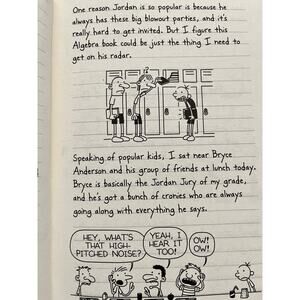 One reason Jordan is so popular is because he
always has these big blowout parties, and it's
really hard to get invited. But I figure this
Algebra book could be just the thing I need to
get on his radar.
Speaking of popular kids, I sat near Bryce
Anderson and his group of friends at lunch today.
Bryce is basically the Jordan Jury of my grade,
and he's got a bunch of cronies who are always
going along with everything he says.
HEY, WHAT'S
THAT HIGH-
PITCHED NOISE?
YEAH, I
HEAR IT
TOO!
OW!
OW!